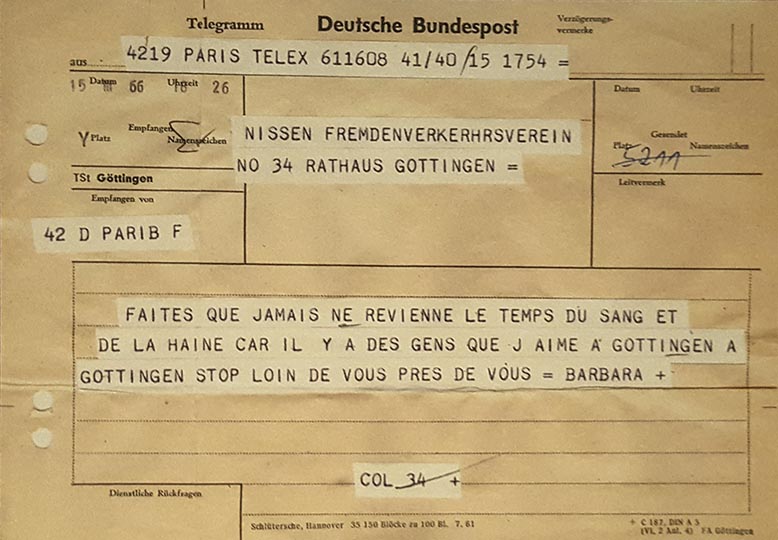 Telegramm Deutsche Bundespost Verzögerungs-
vermerke
aus 4219 PARIS TELEX 611608 41/40/15 1754 =
Datum Uhrzeit
15 III 66 18 26
Empfangen
Platz Namenszeichen
Y
TSt Göttingen
Empfangen von
42 D PARIB F
NISSEN FREMDENVERKERHRSVEREIN
NO 34 RATHAUS GOTTINGEN =
Datum Uhrzeit
Gesendet
Platz Namenszeichen
Leitvermerk
FAITES QUE JAMAIS NE REVIENNE LE TEMPS DU SANG ET
DE LA HAINE CAR IL Y A DES GENS QUE J AIME A GOTTINGEN A
GOTTINGEN STOP LOIN DE VOUS PRES DE VOUS = BARBARA +
COL 34 +
Dienstliche Rückfragen
Schlütersche, Hannover 35 150 Blöcke zu 100 Bl. 7. 61
+ C 187, DIN A 5
(VI, 2 Anl. 4) FA Göttingen